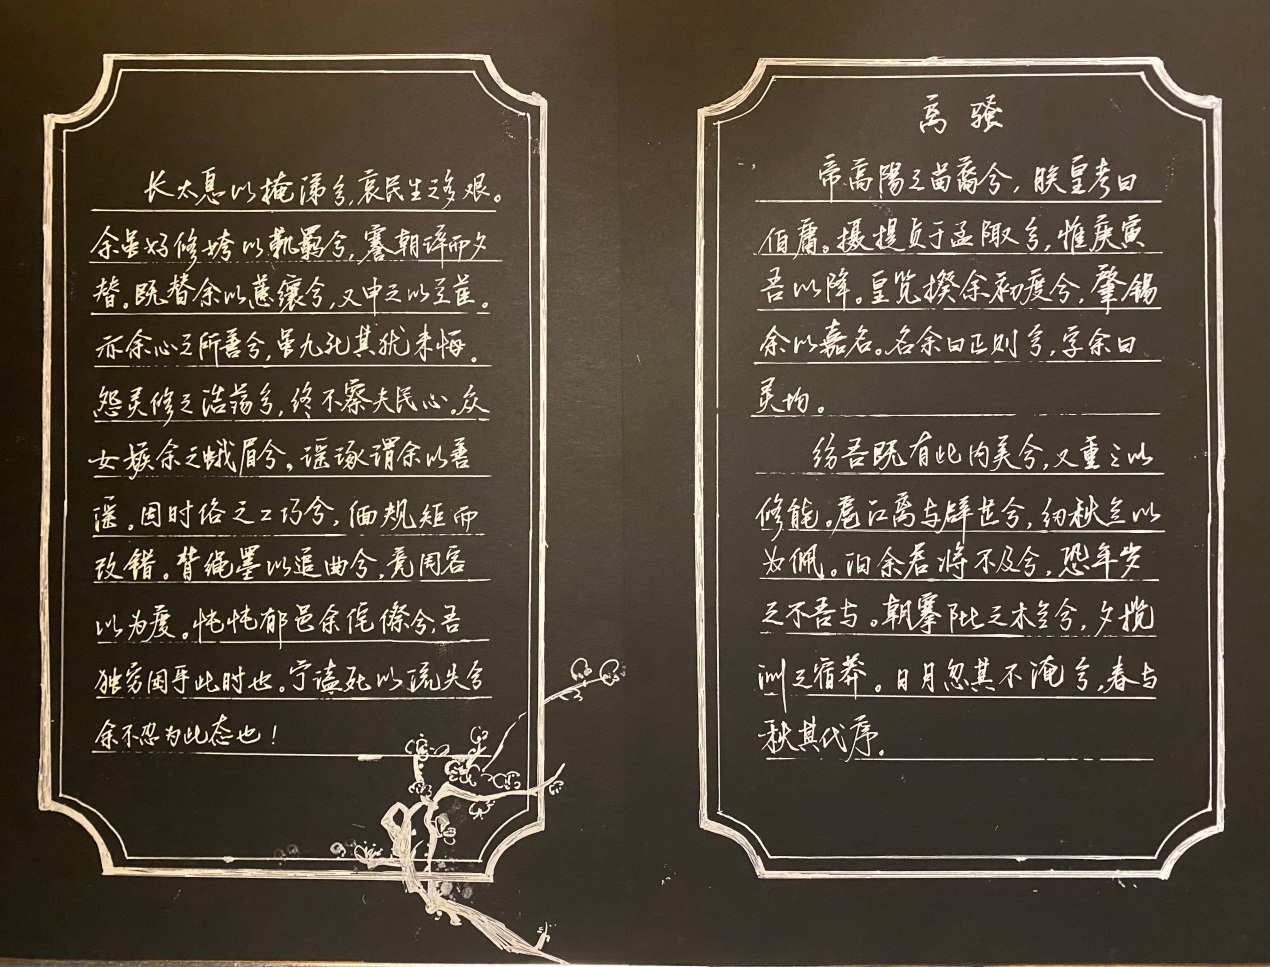 离骚
帝高陽之苗裔兮，朕皇考曰
伯庸。摄提贞于孟陬兮，惟庚寅
吾以降。皇览揆余初度兮，肇锡
余以嘉名。名余曰正则兮，字余曰
灵均。
纷吾既有此内美兮，又重之以
修能。扈江离与辟芷兮，纫秋兰以
为佩。汩余若将不及兮，恐年岁
之不吾与。朝搴阰之木兰兮，夕揽
洲之宿莽。日月忽其不淹兮，春与
秋其代序。
长太息以掩涕兮，哀民生之多艰。
余虽好修姱以鞿羁兮，謇朝谇而夕
替。既替余以蕙纕兮，又申之以揽茝。
亦余心之所善兮，虽九死其犹未悔。
怨灵修之浩荡兮，终不察夫民心。众
女嫉余之蛾眉兮，谣诼谓余以善
淫。固时俗之工巧兮，偭规矩而
改错。背绳墨以追曲兮，竞周容
以为度。忳忳郁邑余侘傺兮，吾
独穷困乎此时也。宁溘死以流失兮
余不忍为此态也！